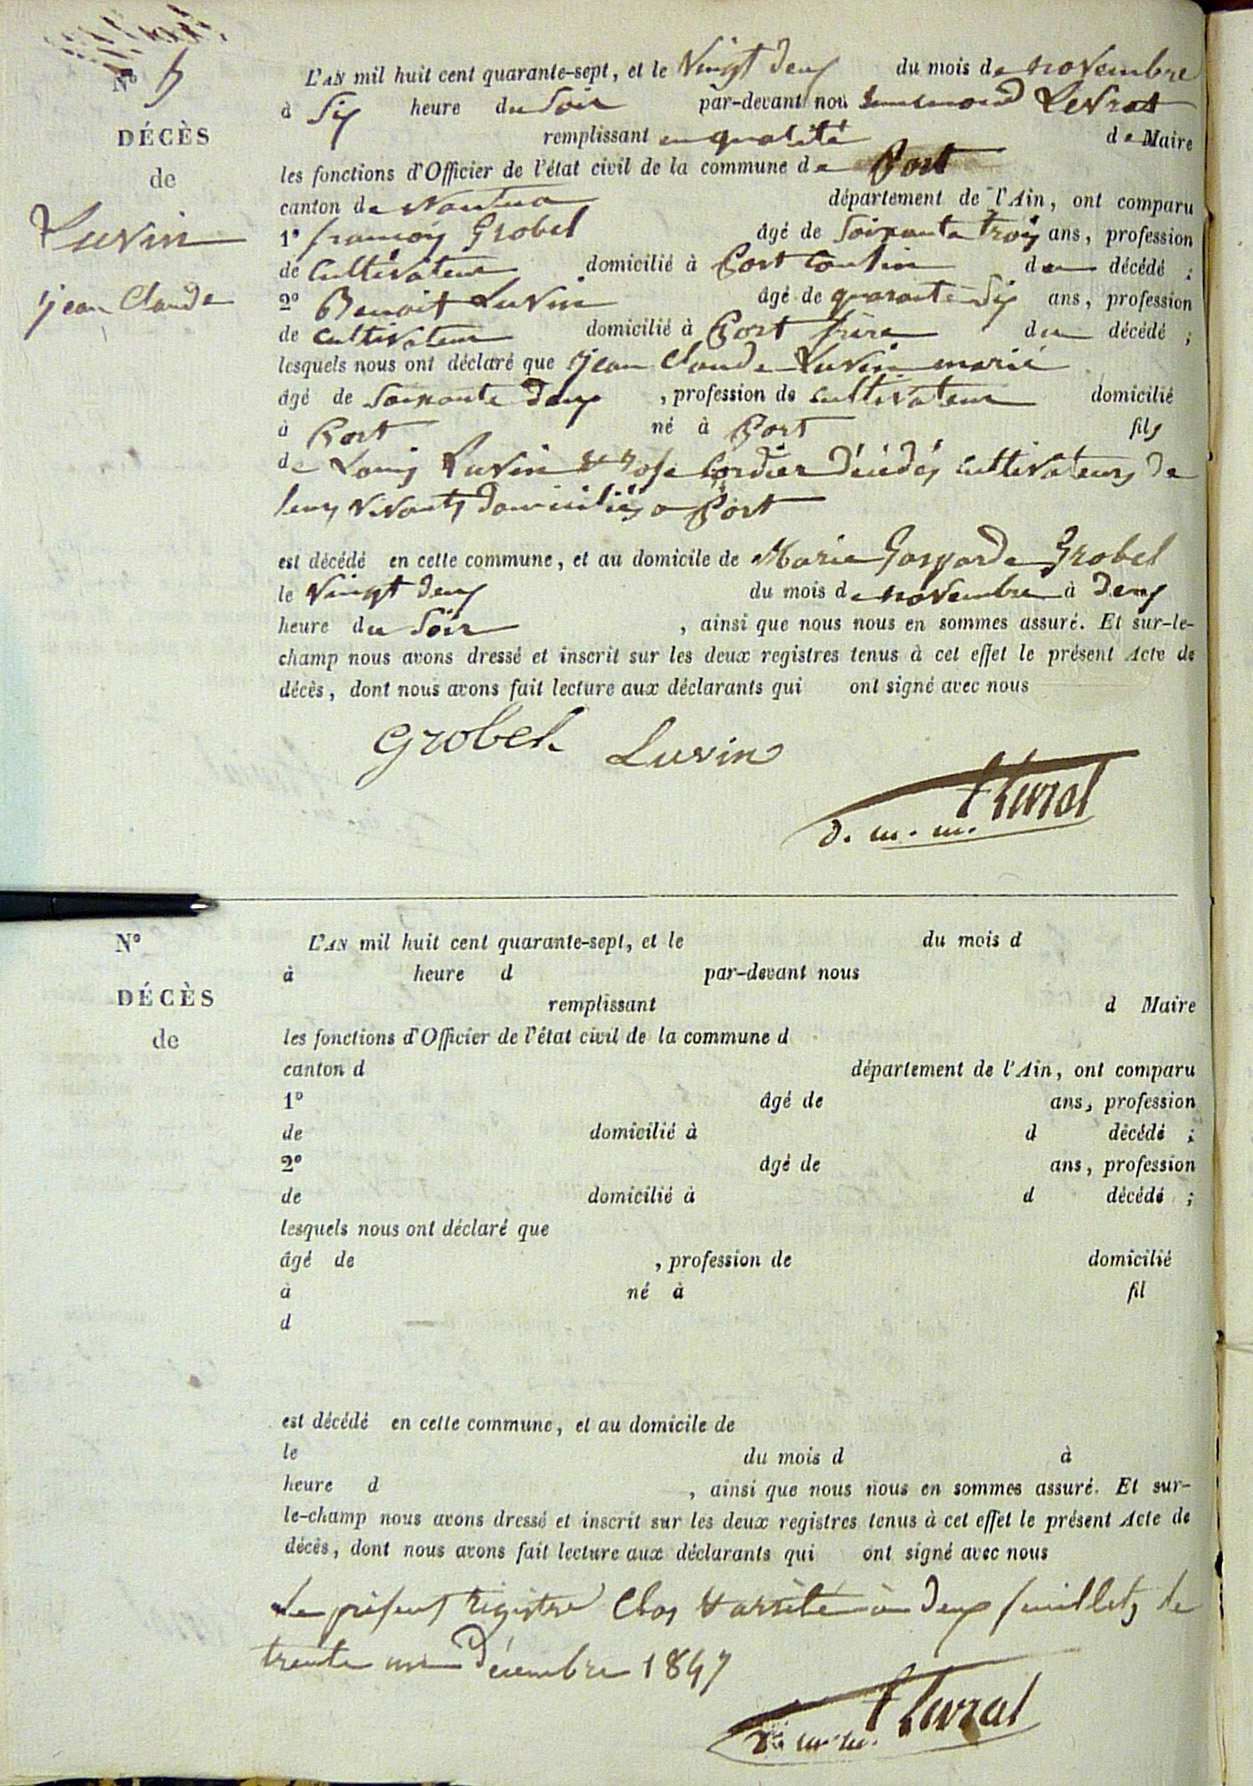 N° 5
DÉCÈS
de
Luvin
jean Claude
L'AN mil huit cent quarante-sept, et le Vingt deux du mois de novembre
à Six heure du Soir par-devant nou Levrat
remplissant en qualité de Maire
les fonctions d'Officier de l'état civil de la commune de Port
canton de Nantua département de l'Ain, ont comparu
1° françois Grobel âgé de Soixante trois ans, profession
de Cultivateur domicilié à Port Cousin du décédé ;
2° Benoit Luvin âgé de quarante Six ans, profession
de cultivateur domicilié à Port frère du décédé ;
lesquels nous ont déclaré que jean Claude Luvin marié
âgé de Soixante deux , profession de cultivateur domicilié
à Port né à Port fils
de Louis Luvin & Rose Cordier décédés cultivateurs de
leurs vivants domiciliés a Port
est décédé en cette commune, et au domicile de Marie Gasparde Grobel
le Vingt deux du mois de novembre à deux
heure du Soir , ainsi que nous nous en sommes assuré. Et sur-le-
champ nous avons dressé et inscrit sur les deux registres tenus à cet effet le présent Acte de
décès, dont nous avons fait lecture aux déclarants qui ont signé avec nous
Grobel Luvin
d. m. m.
N°
DÉCÈS
de
L'AN mil huit cent quarante-sept, et le du mois d
à heure d par-devant nous
remplissant d Maire
les fonctions d'Officier de l'état civil de la commune d
canton d département de l'Ain, ont comparu
1° âgé de ans, profession
de domicilié à d décédé ;
2° âgé de ans, profession
de domicilié à d décédé ;
lesquels nous ont déclaré que
âgé de , profession de domicilié
à né à fil
d
est décédé en cette commune, et au domicile de
le du mois d à
heure d , ainsi que nous nous en sommes assuré. Et sur-
le-champ nous avons dressé et inscrit sur les deux registres tenus à cet effet le présent Acte de
décès, dont nous avons fait lecture aux déclarants qui ont signé avec nous
Le présent registre Clos & arrêté à deux feuillets le
trente un Décembre 1847